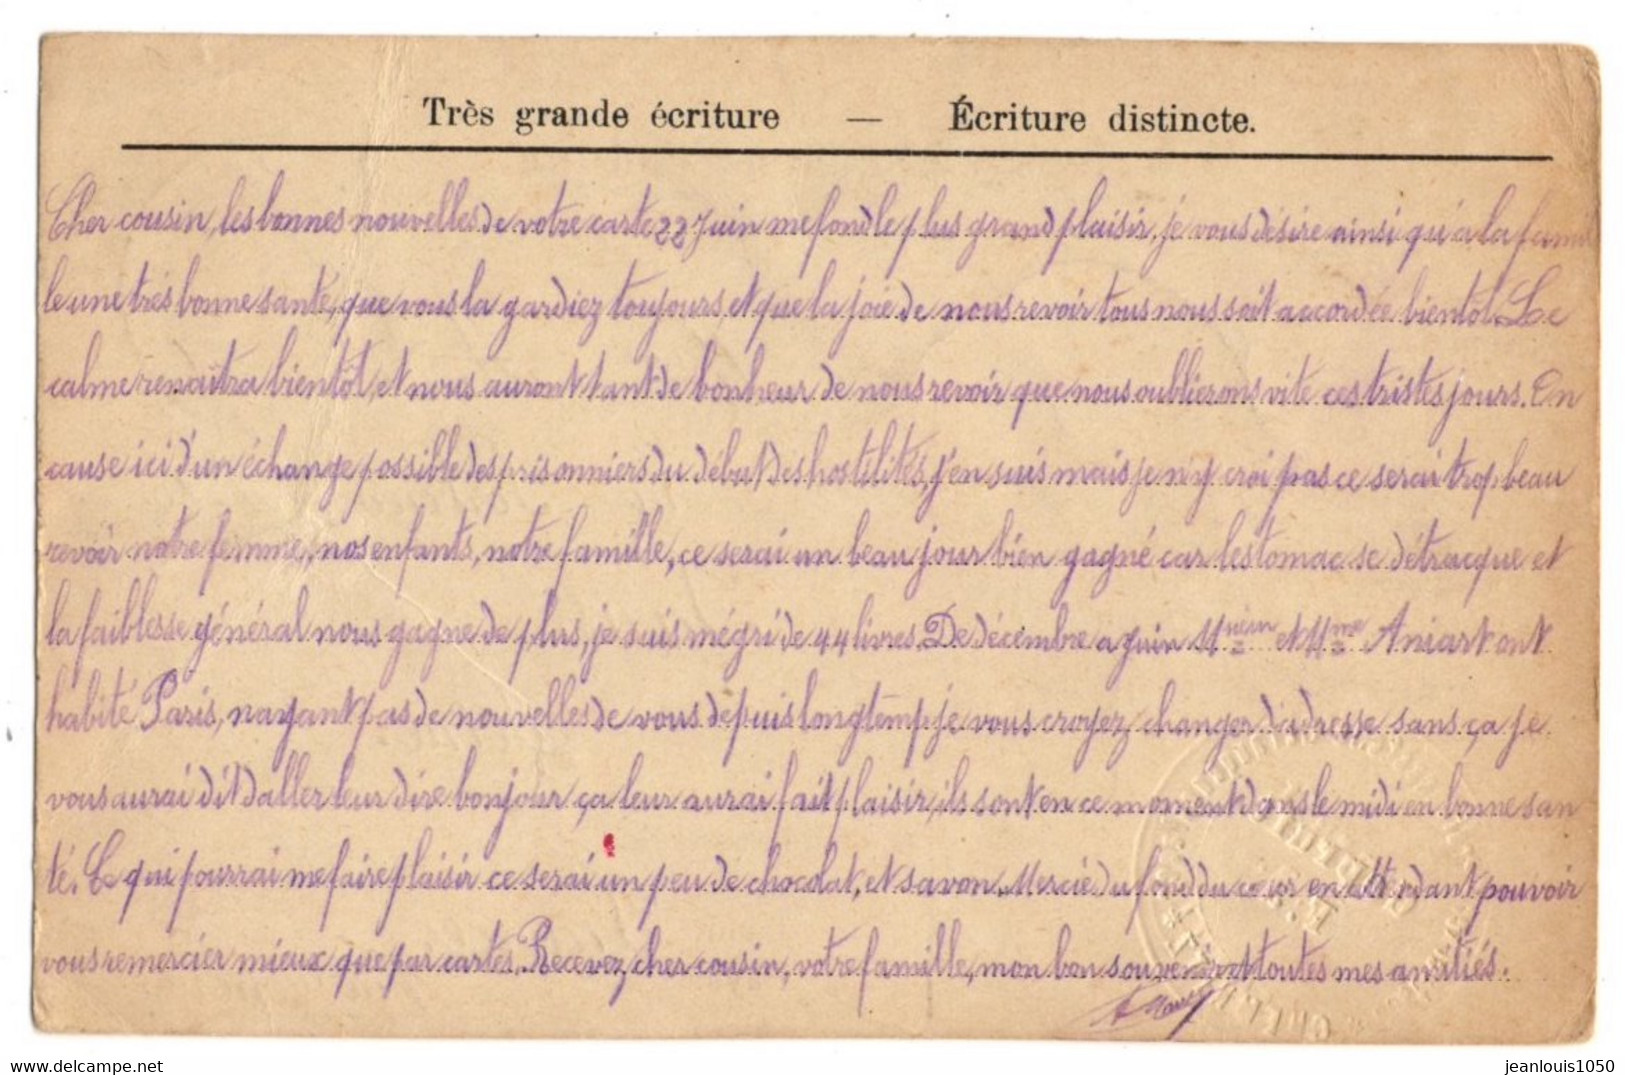 Très grande écriture — Écriture distincte.
Cher cousin, les bonnes nouvelles de votre carte 22 Juin me fond le plus grand plaisir, je vous désire ainsi qu'a la famil
le une très bonne santé, que vous la gardiez toujours et que la joie de nous revoir tous nous soit accordée bientôt. Le
calme renaîtra bientôt, et nous auront tant de bonheur de nous revoir que nous oublierons vite ces tristes jours. On
cause ici d'un échange possible des prisonniers du début des hostilités, j'en suis mais je n'y croi pas ce serai trop beau
revoir notre femme, nos enfants, notre famille, ce serai un beau jour bien gagné car l'estomac se détracque et
la faiblesse général nous gagne de plus, je suis mégri de 44 livres. De décembre a juin Mr et Mme Aniart ont
habité Paris, nayant pas de nouvelles de vous depuis longtemp je vous croyez changer d'adresse sans ça je
vous aurai dit daller leur dire bonjour, ça leur aurai fait plaisir, ils sont en ce moment dans le midi en bonne san
té. Ce qui pourrai me faire plaisir ce serai un peu de chocolat, et savon. Mercie du fond du cœur en attendant pouvoir
vous remercier mieux que par cartes. Recevez, cher cousin, votre famille, mon bon souvenir et toutes mes amitiés.
jeanlouis1050